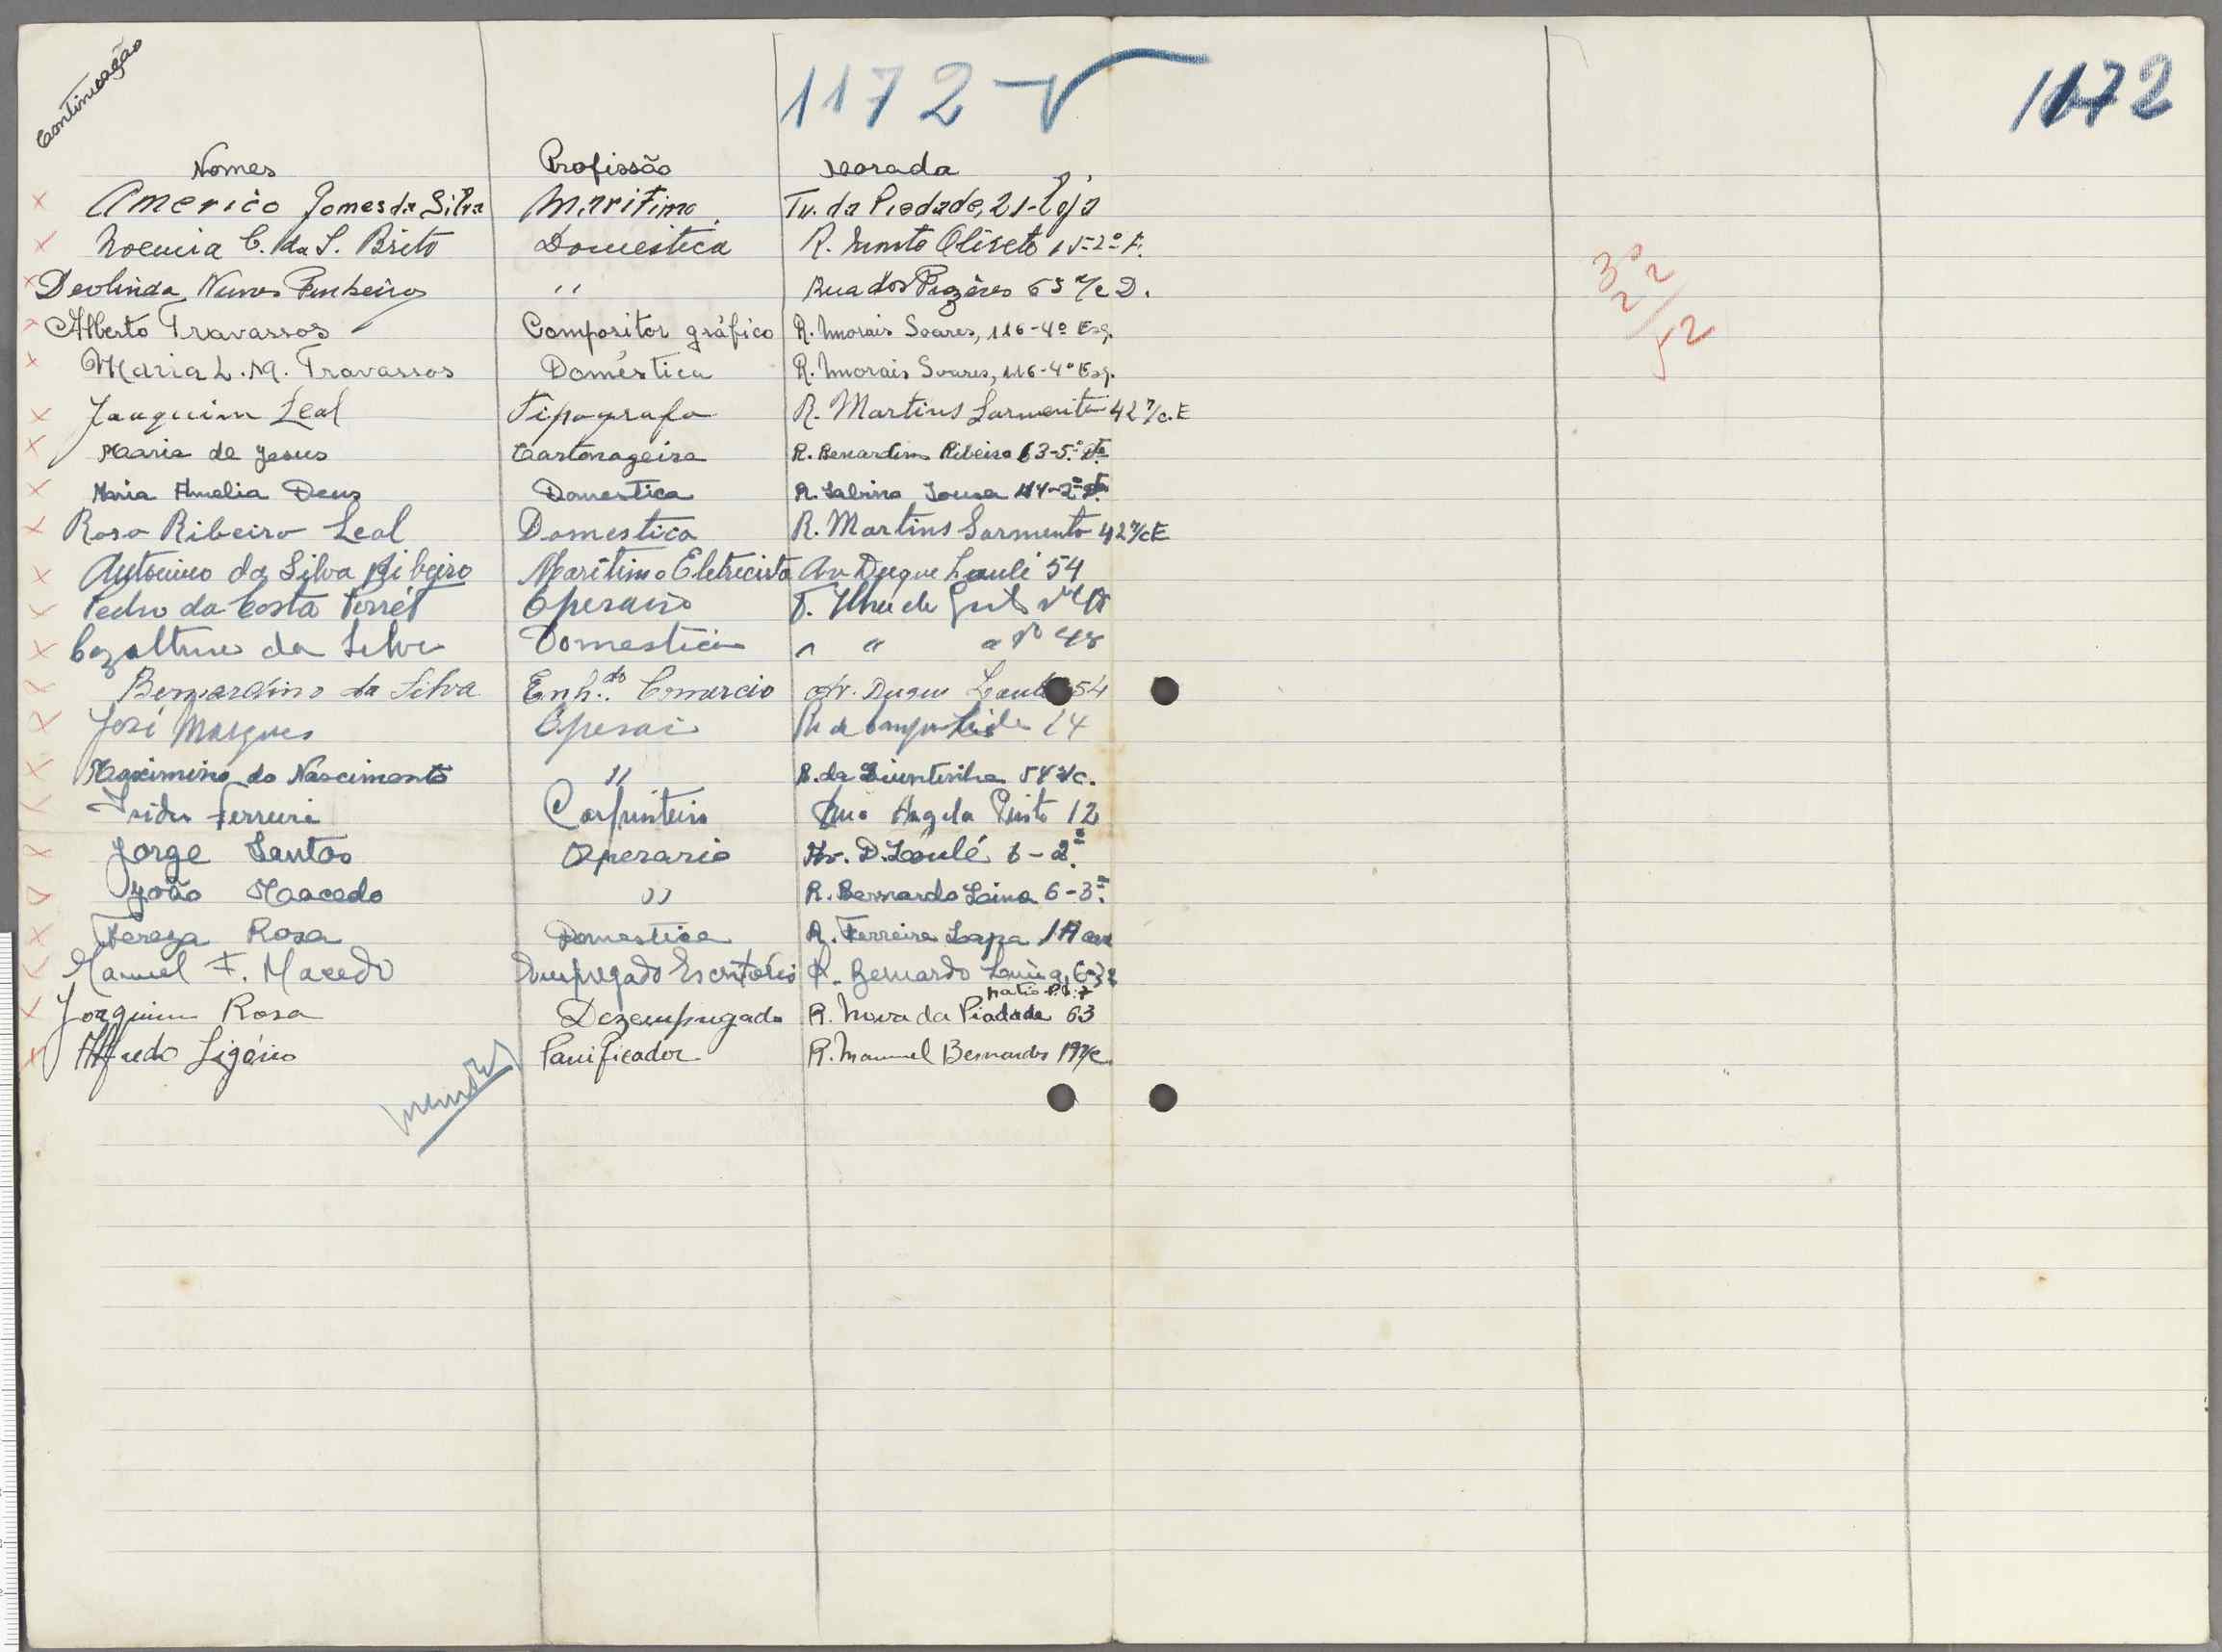 Continuação
1172 v
1172
Nomes Profissão Morada
Americo Gomes da Silva Maritimo Tv. da Piedade, 21-loja
Noemia C. da S. Brito Domestica R. Monte Olivete 15-2º F.
Deolinda Nunes Pinheiro " Rua dos Prazères 65 r/c D.
Alberto Travassos Compositor gráfico R. Morais Soares, 116-4º Esq.
Maria L. M. Travassos Doméstica R. Morais Soares, 116-4º Esq.
Joaquim Leal Tipografo R. Martins Sarmento 42 r/c. E
Maria de Jesus Cartonageira R. Bernardim Ribeiro 63-5.º Dto
Maria Amelia Deus Domestica R. Sabino Sousa 114-2º Dto
Rosa Ribeiro Leal Domestica R. Martins Sarmento 42 r/c E
Antonino da Silva Ribeiro Maritimo Eletrecista Av Duque Loulé 54
Pedro da Costa Operario
da Silva Domestica " " " Nº 48
Bernardino da Silva Enh.do Comercio Av. Duque Loulé 54
José Marques Operai 14
Maximino do Nascimento " R. da 54 r/c.
Isidro Ferreira Carpinteiro Rua Angela Pinto 12
Jorge Santos Operario Av. D. Loulé 6-2.º
João Macedo " R. Bernardo Lima 6-3.º
Tereza Rosa Domestica R. Ferreira Lapa 1A
Manuel F. Macedo Empregado Escritório R. Bernardo Lima, 6-3º
patio P. 7
Joaquim Rosa Dezempregado R. Nova da Piadade 63
Alfredo Ligério Panificador R. Manuel Bernardes 19 r/c
30
22
52